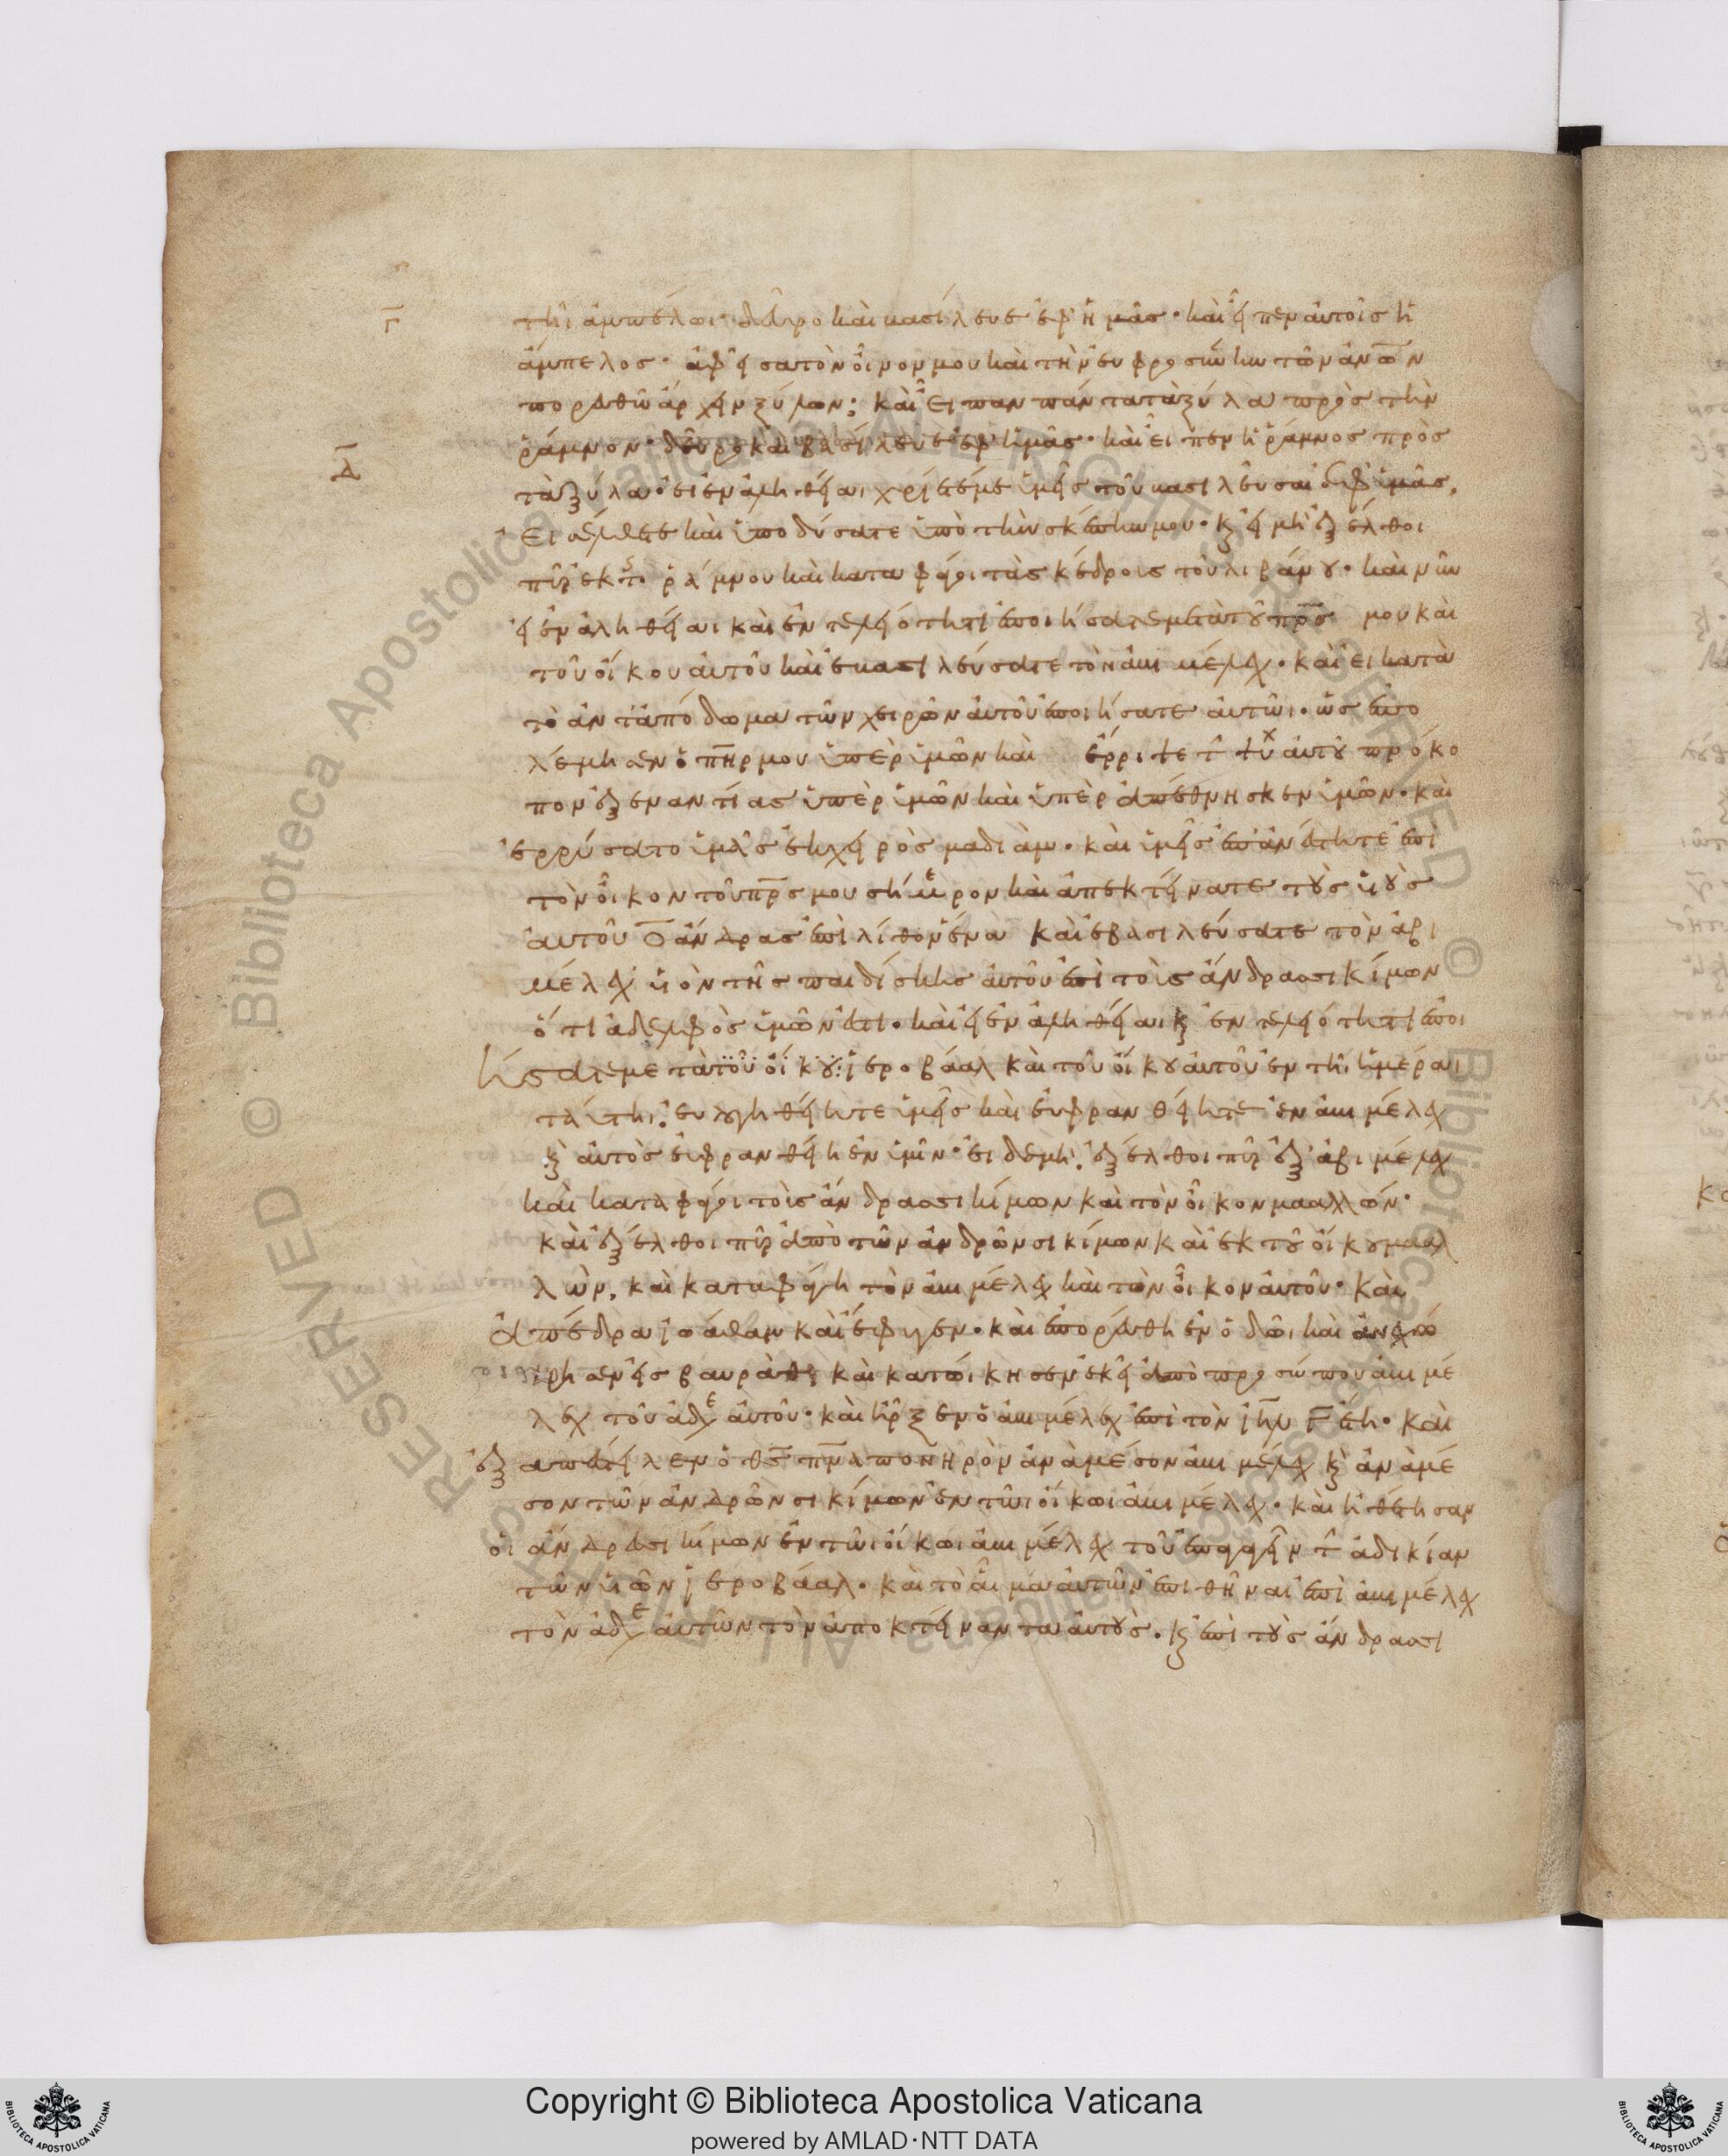 Γ
τῆι ἀμπέλωι· δεῦρο καὶ βασίλευε ἐφ ἡμᾶς· καὶ εἶπεν αὐτοῖς ἡ
ἄμπελος· ἀφεῖσα τὸν οἶνον μου καὶ τὴν εὐφροσύνην τῶν ἀνων
πορευθῶ ἄρχειν ξύλων; καὶ εἶπαν πάντα τὰ ξύλα πρὸς τὴν
ῥάμνον· δεῦρο καὶ βασίλευε ἐφ ἡμᾶς· καὶ εἶπεν ἡ ῥάμνος πρὸς
Δ
τὰ ξύλα· εἰ ἐν ἀληθείαι χρίετέ με ὑμεῖς τοῦ βασιλεῦσαι ἐφ ὑμᾶς,
εἰσέλθετε καὶ ὑποδύσατε ὑπὸ τὴν σκέπην μου· κ εἰ μὴ ἐξέλθοι
πῦρ ἐκ τ ῥάμνου καὶ καταφάγοι τὰς κέδρους τοῦ λιβάνου· καὶ νῦν
εἰ ἐν ἀληθείαι καὶ ἐν τελειότητι ἐποιήσατε μετὰ τοῦ πρς μου καὶ
τοῦ οἴκου αὐτοῦ καὶ ἐβασιλεύσατε τὸν ἀβιμέλεχ· καὶ εἰ κατὰ
τὸ ἀνταπόδομα τῶν χειρῶν αὐτοῦ ἐποιήσατε αὐτῶι· ὡς ἐπο
λέμησεν ὁ πηρ μου ὑπὲρ ὑμῶν καὶ ἔρριψε τ ψυχ αὐτοῦ πρόκο
πον ἐξεναντίας ὑπὲρ ὑμῶν καὶ ὑπὲρ ἀπέθνησκεν ὑμῶν· καὶ
ἐρρύσατο ὑμᾶς ἐκ χειρὸς μαδιάμ· καὶ ὑμεῖς ἐπανέστητε ἐπὶ
τὸν οἶκον τοῦ πρς μου σήμερον καὶ ἀπεκτείνατε τοὺς υἱοὺς
αὐτοῦ Ο ἄνδρας ἐπὶ λίθον ἕνα καὶ ἐβασιλεύσατε τὸν ἀβι
μέλεχ υἱὸν τῆς παιδίσκης αὐτοῦ ἐπὶ τοῖς ἄνδρασι κίμων
ὅτι ἀδελφὸς ὑμῶν ἐστι· καὶ εἰ ἐν ἀληθείαι κ ἐν τελειότητι ἐποι
ήσατε μετὰ τοῦ οἴκου ἱεροβάαλ καὶ τοῦ οἴκου αὐτοῦ ἐν τῆι ἡμέραι
ταύτηι. εὐλογηθείητε ὑμεῖς καὶ εὐφρανθείητε ἐν ἀβιμέλεχ
κ αὐτὸς εὐφρανθείη ἐν ὑμῖν· εἰ δὲ μή. ἐξέλθοι πῦρ ἐξ ἀβιμέλεχ
καὶ καταφάγοι τοῖς ἄνδρασι κίμων καὶ τὸν οἶκον μααλλών·
καὶ ἐξέλθοι πῦρ ἀπὸ τῶν ἀνδρῶν σικίμων καὶ ἐκ τοῦ οἴκου μααλ
λὼν, καὶ καταφάγη τὸν ἀβιμέλεχ καὶ τὸν οἶκον αὐτοῦ· καὶ
ἀπέδρα ἰωάθαμ καὶ ἔφυγεν· καὶ ἐπορεύθη ἐν ὁδῶι καὶ ἀνεχώ
ρησεν εἰς βαυρὰθ καὶ κατώικησεν ἐκεῖ ἀπὸ προσώπου ἀβιμέ
λεχ τοῦ ἀδε αὐτοῦ· καὶ ἦρξεν ὁ ἀβιμέλεχ ἐπὶ τὸν ιηλ Γ ἔτη· καὶ
ἐξαπέστειλεν ὁ θς πνα πονηρὸν ἀνὰ μέσον ἀβιμέλεχ κ ἀνὰ μέ
σον τῶν ἀνδρῶν σικίμων ἐν τῶι οἴκωι ἀβιμέλεχ· καὶ ἠθέτησαν
οἱ ἄνδρασι κίμων ἐν τῶι οἴκωι ἀβιμέλεχ τοῦ ἐπαγαγεῖν τ ἀδικίαν
τῶν υἱῶν ἱεροβάαλ· καὶ τὸ αἷμα αὐτῶν ἐπιθῆναι ἐπὶ ἀβιμέλεχ
τὸν ἀδε αὐτῶν τὸν ἀποκτείναντα αὐτοὺς· κ ἐπὶ τοὺς ἄνδρασι
Copyright © Biblioteca Apostolica Vaticana
powered by AMLAD·NTT DATA